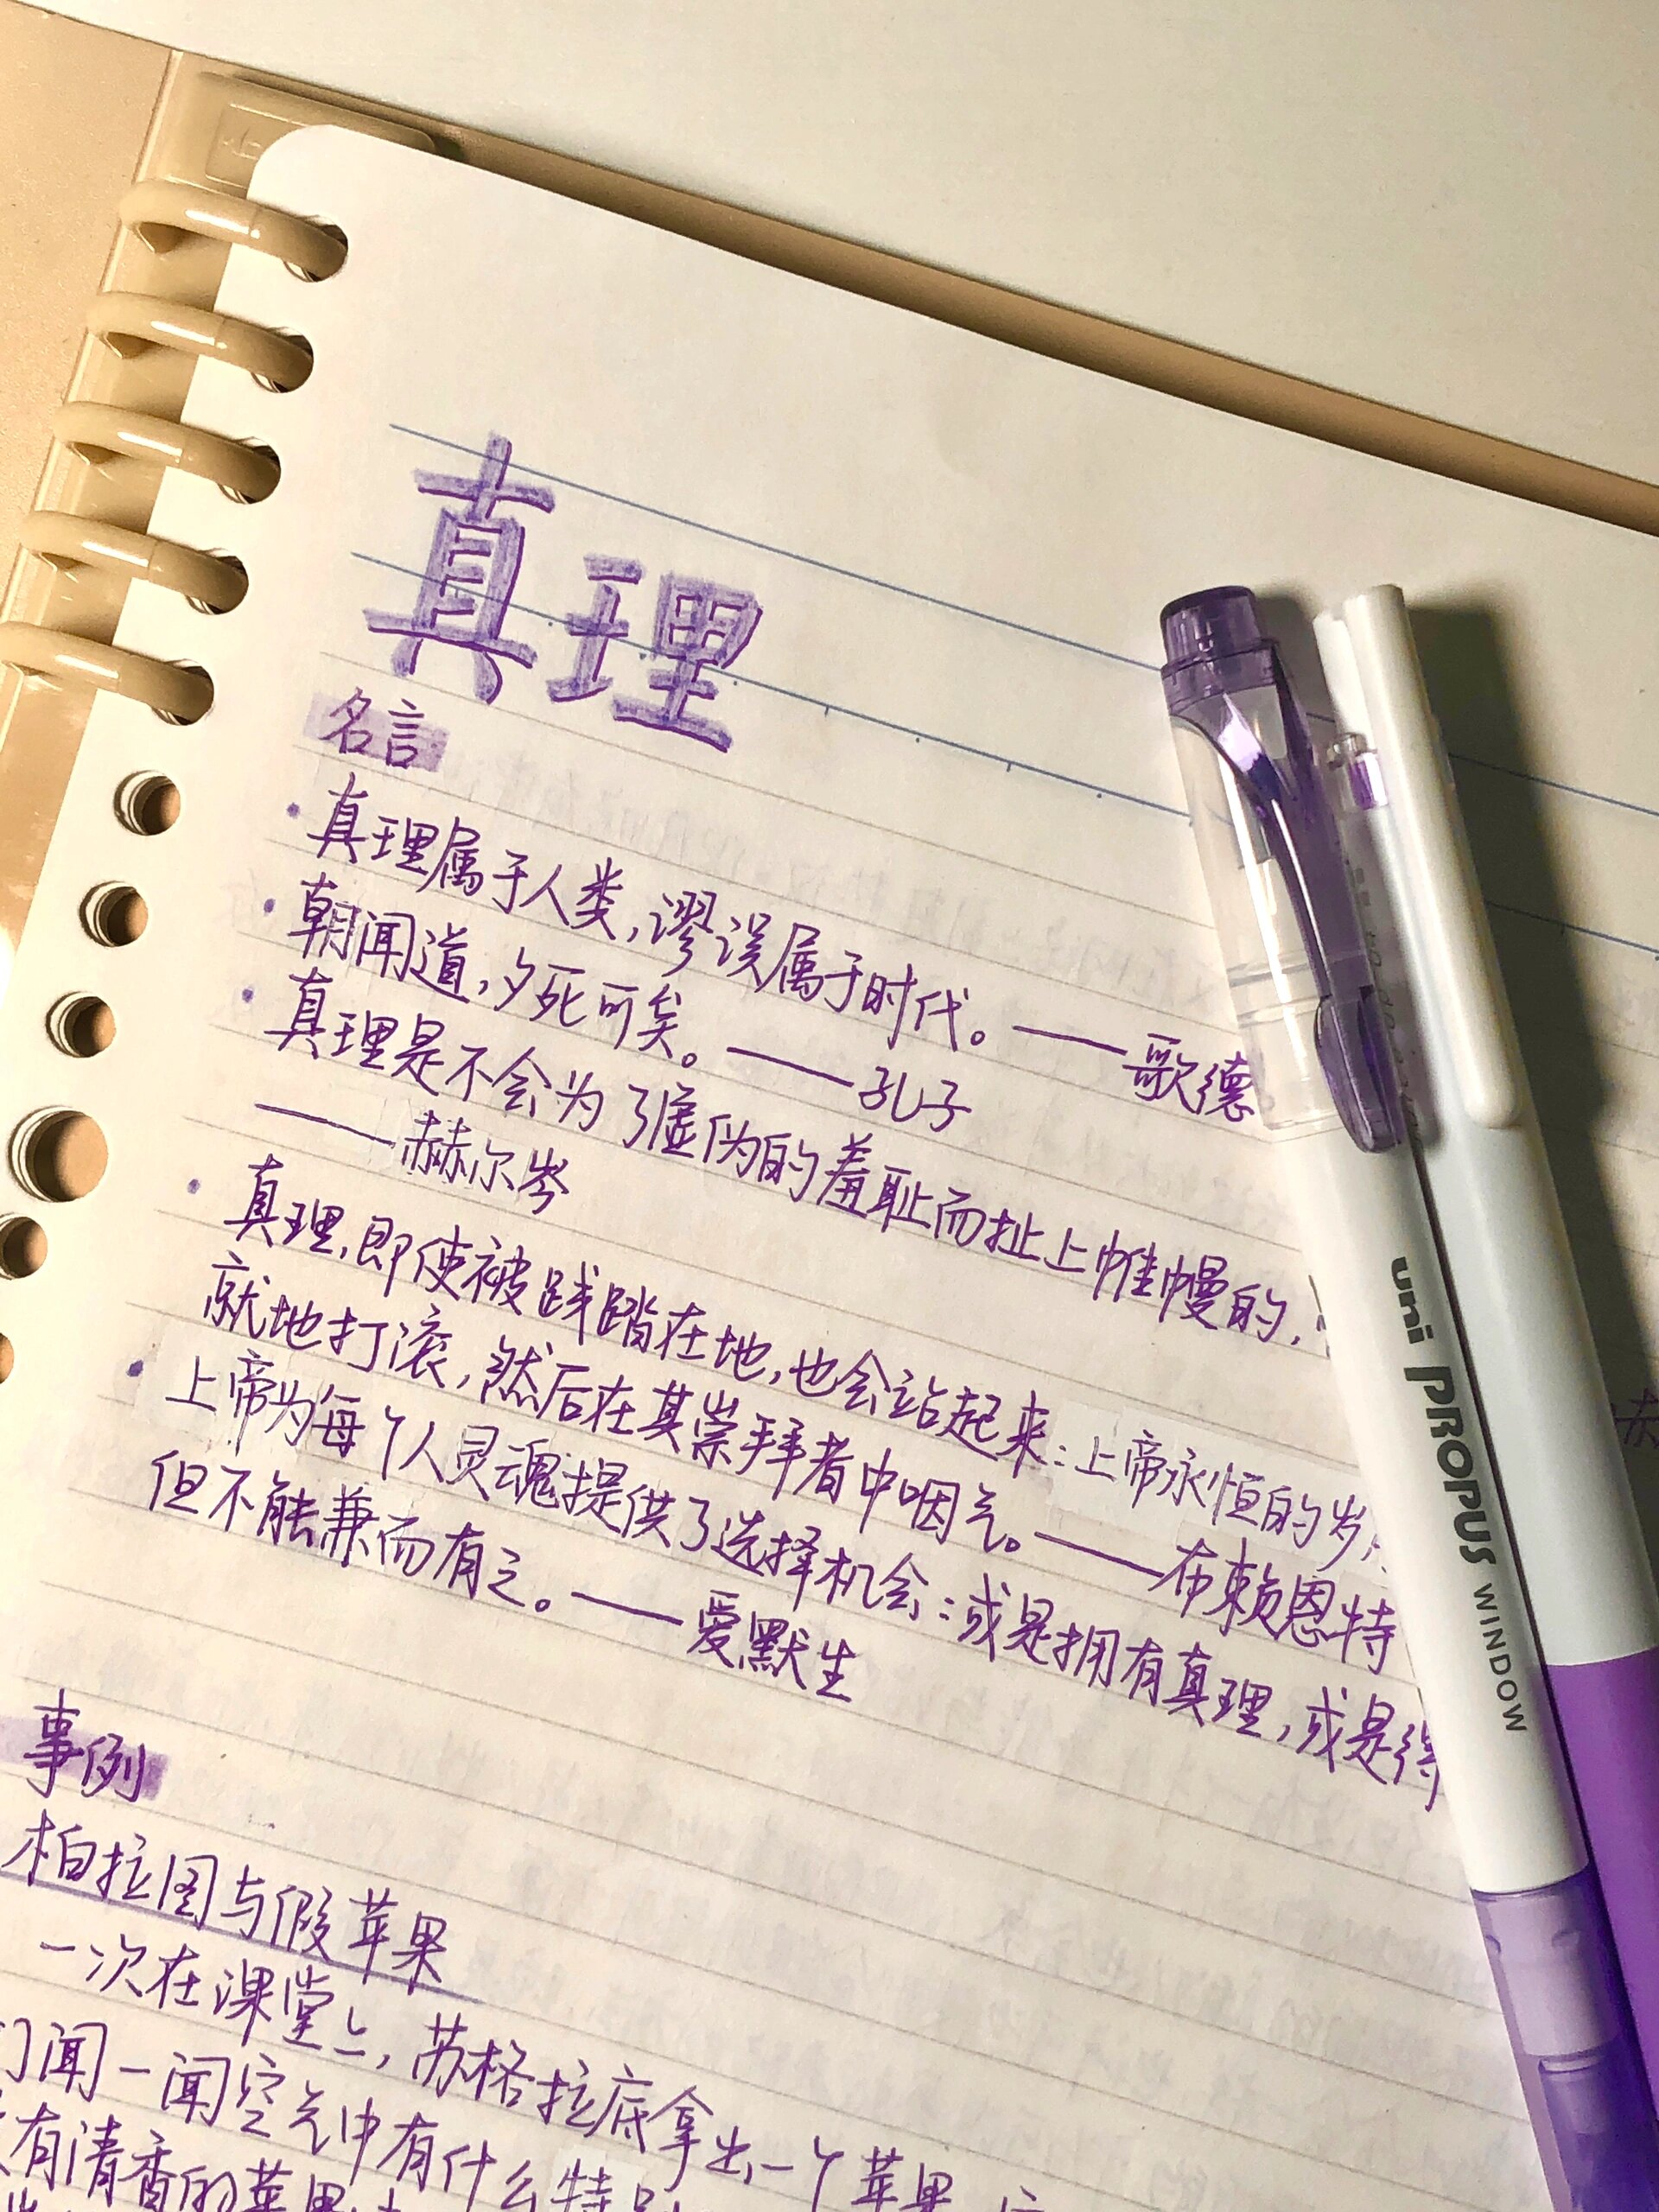 真理
名言
真理属于人类，谬误属于时代。——歌德
朝闻道，夕死可矣。——孔子
真理是不会为了虚伪的羞耻而扯上帷幔的，
——赫尔岑
真理，即使被践踏在地，也会站起来：上帝永恒的岁
就地打滚，然后在其崇拜者中咽气。——布赖恩特
上帝为每个人灵魂提供了选择机会：或是拥有真理，或是得
但不能兼而有之。——爱默生
事例
柏拉图与假苹果
一次在课堂上，苏格拉底拿出一个苹果
们闻一闻空气中有什么特别
有清香的苹果
uni PROPUS WINDOW